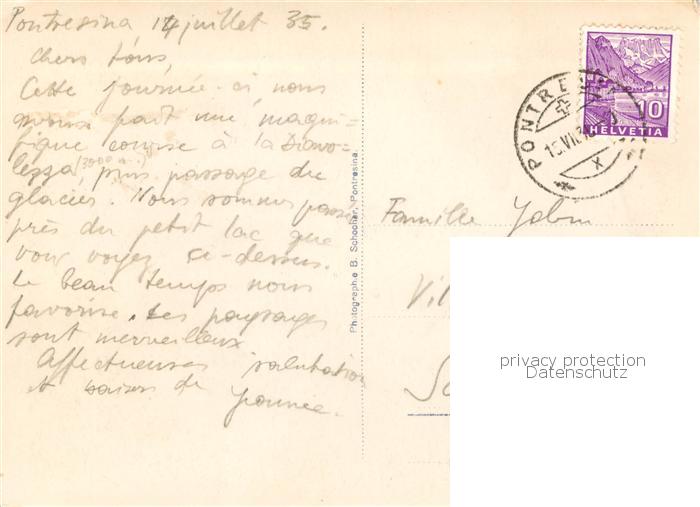 Pontresina 14 juillet 35.
Chers tous,
Cette journée-ci nous
avons fait une magni-
fique course à la Diavo-
lezza (3000 m.) puis passage du
glacier. Nous sommes passés
près du petit lac que
vous voyez ci-dessus.
Le beau temps nous
favorise. Les paysages
sont merveilleux
Affectueuses salutations
et baisers de
Photographie B. Schocher, Pontresina
PONTRESINA
15.VII.35
X
10
HELVETIA
Famille
privacy protection
Datenschutz